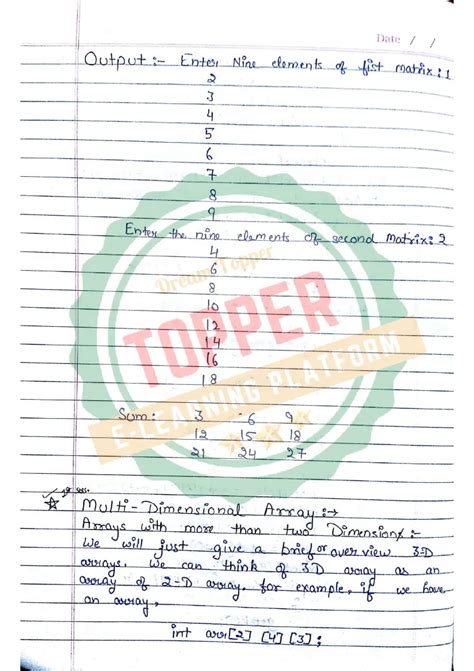 Date / /
Output :- Enter Nine elements of fist matrix: 1
2
3
4
5
6
7
8
9
Enter the nine elements of second Matrix: 2
4
6
8
10
12
14
16
18
Dream Topper
TOPPER
E-LEARNING PLATFORM
Sum: 3 6 9
12 15 18
21 24 27
Multi-Dimensional Array :→
Arrays with more than two Dimensions :-
We will just give a brief or over view 3-D
arrays. We can think of 3D array as an
array of 2-D array, for example, if we have
an array,
int arr[2] [4] [3] ;